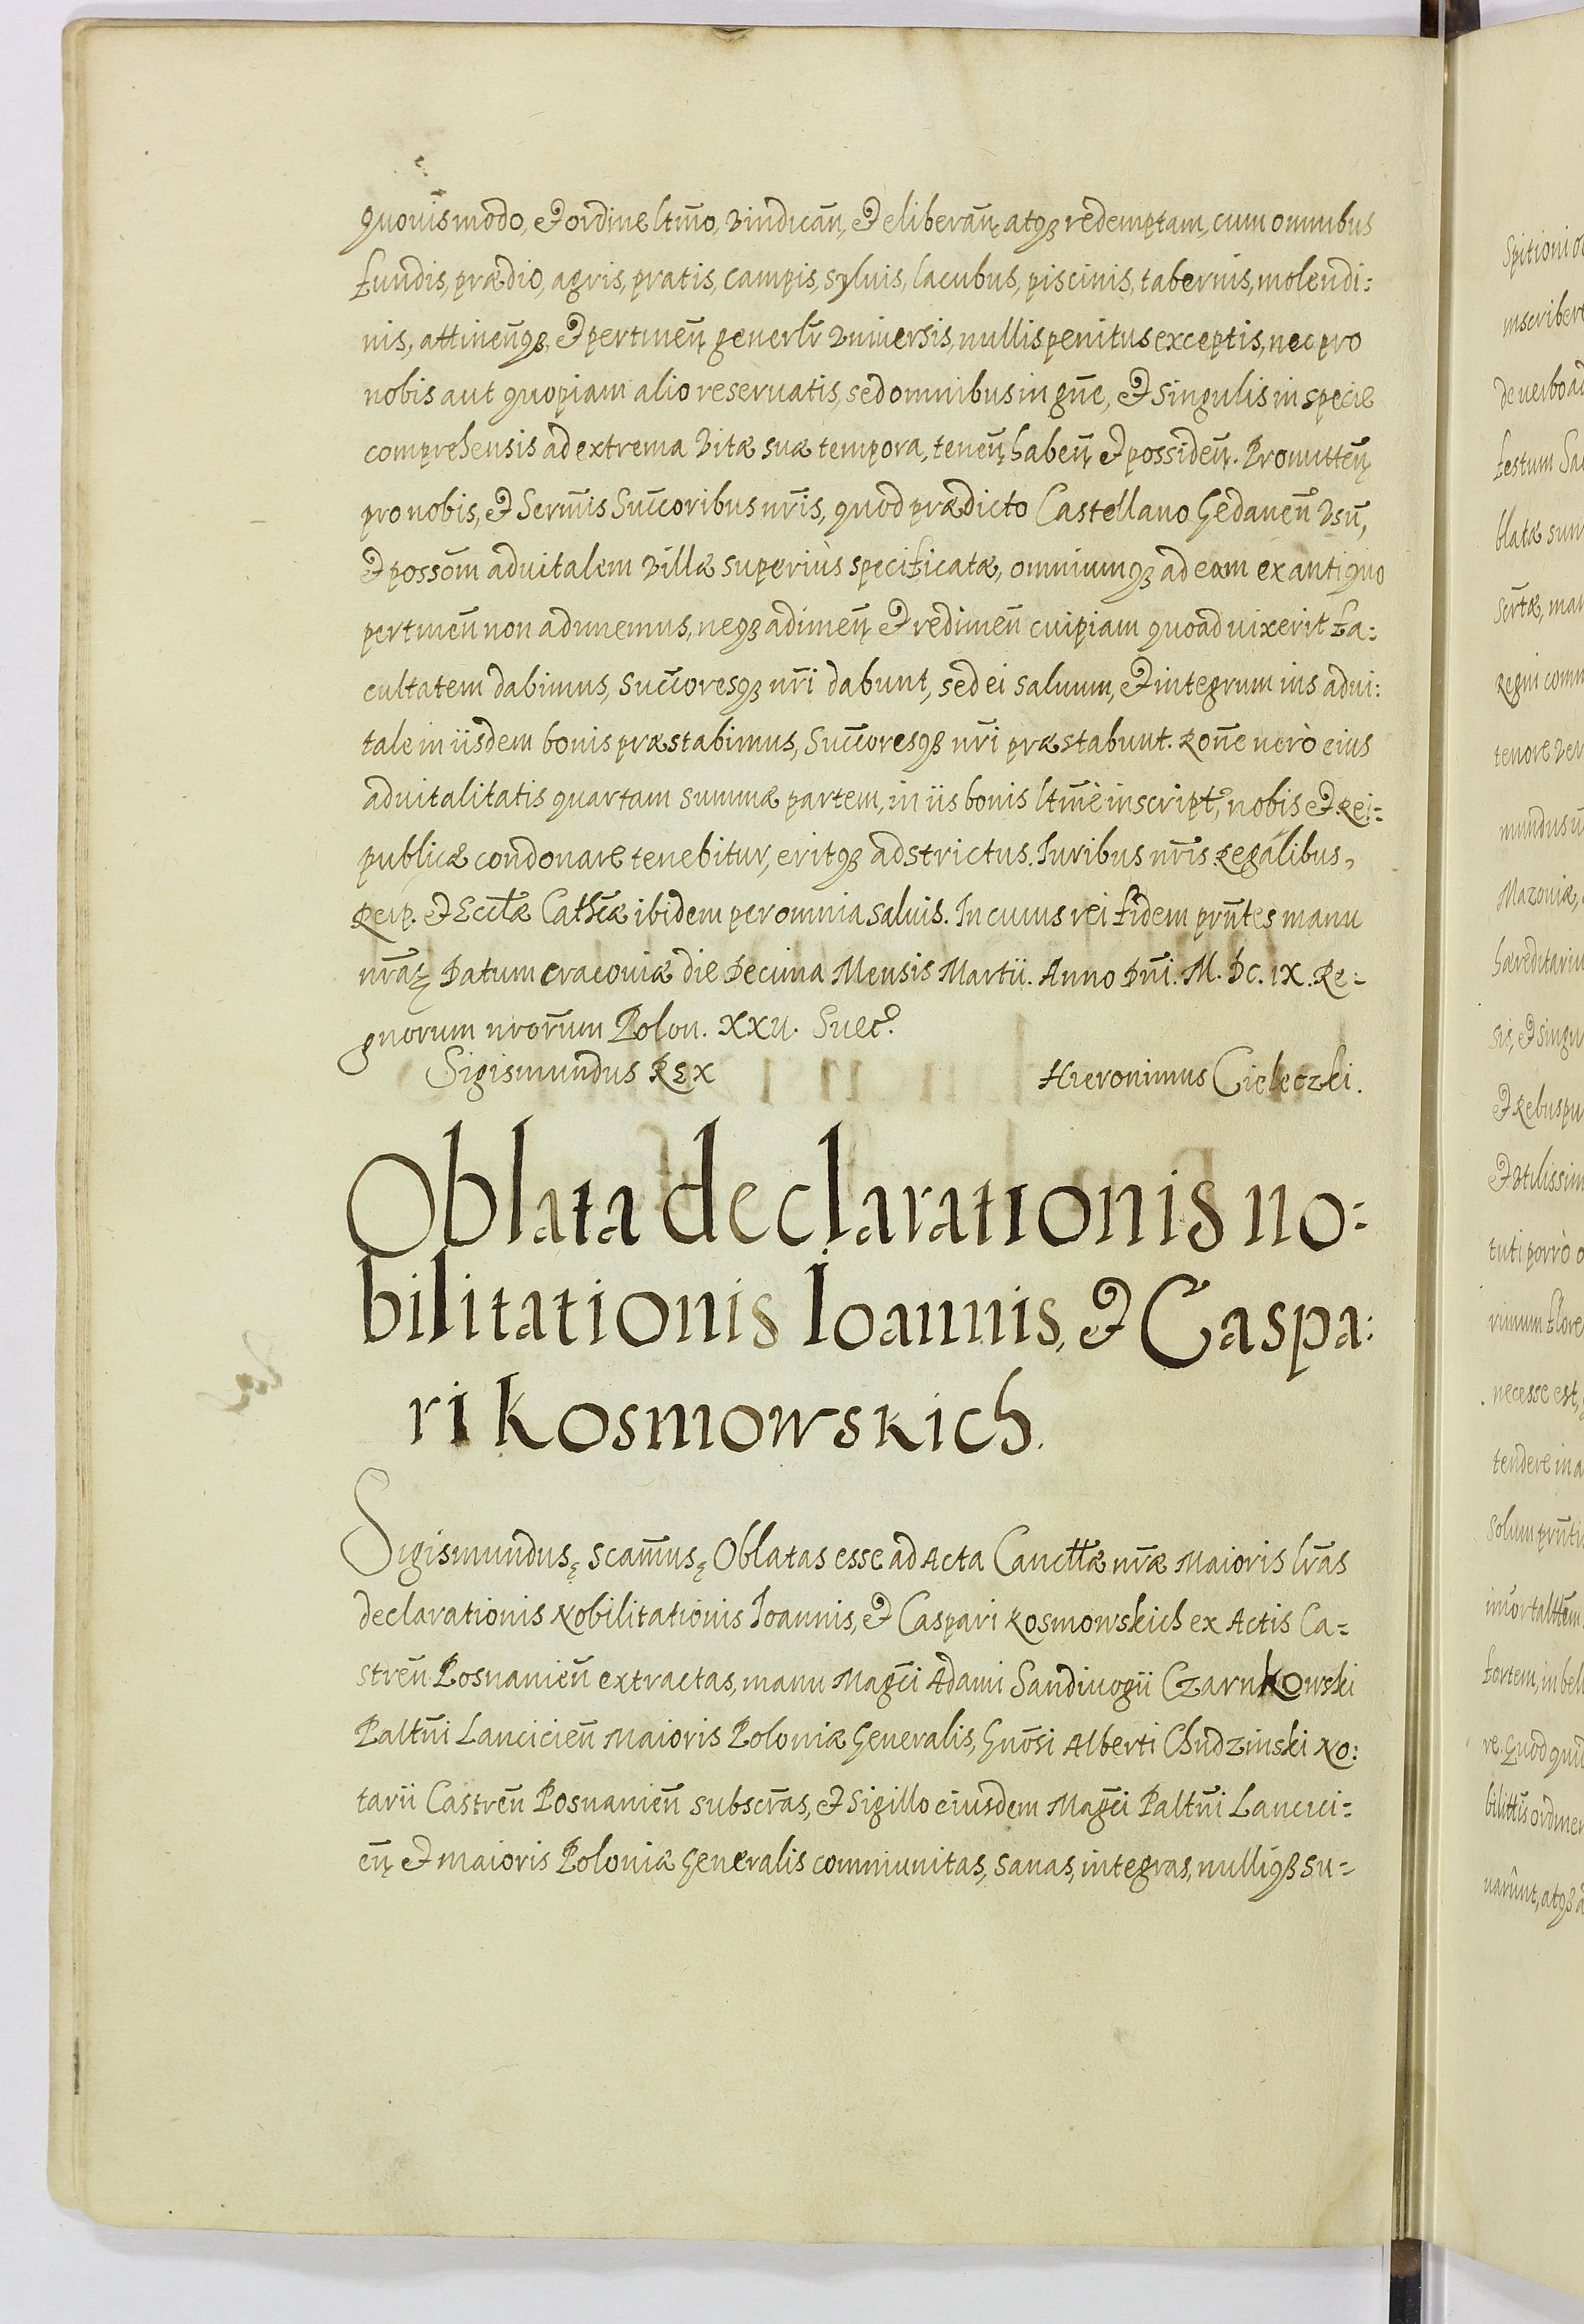 quovis modo, et ordine ltmo, vindicañ, et eliberañ, atq3 redemptam, cum omnibus
fundis, prædio, agris, pratis, campis, sylvis, lacubus, piscinis, tabernis, molendi:
nis, attineñq3, et pertineñ generlr̃ universis, nullis penitus exceptis, nec pro
nobis aut quopiam alio reservatis, sed omnibus in gñe, et singulis in specie
comprehensis ad extrema vitæ suæ tempora, teneñ, habeñ, et possideñ. Promitteñ
pro nobis, et Serm̃is Succ̃oribus nr̃is, quod prædicto Castellano Gedaneñ usũ,
et possom̃ advitalem villæ superiùs specificatæ, omniumq3 ad eam ex antiquo
pertineñ non adimemus, neq3 adimeñ et redimeñ cuipiam quoad vixerit fa:
cultatem dabimus, Succ̃oresq3 nr̃i dabunt, sed ei salvum, et integrum ius advi:
tale in iisdem bonis præstabimus, Succ̃oresq3 nr̃i præstabunt. Roñe verò eius
advitalitatis quartam summæ partem, in iis bonis ltm̃è inscript, nobis et Rei-
publicæ condonare tenebitur, eritq3 adstrictus. Iuribus nr̃is Regalibus,
Reip. et Eccłæ Cathc̃æ ibidem per omnia salvis. In cuius rei fidem prñtes manu
nr̃a Datum Cracoviæ die Decima Mensis Martii. Anno Dñi. M. DC. IX. Re-
gnorum nrõrum Polon. XXII. Suec.
Sigismundus REX Hieronimus Cieleczki.
Oblata declarationis no:
bilitationis Ioannis, et Caspa:
ri Kosmowskich.
Sigismundus, scam̃us, Oblatas esse ad Acta Cancłłæ nr̃æ Maioris lr̃as
declarationis Nobilitationis Ioannis, et Caspari Kosmowskich ex Actis Ca-
streñ Posnanieñ extractas, manu Magc̃i Adami Sandivogii Czarnkowski
Paltñi Lancicieñ Maioris Poloniæ Generalis, Gnõsi Alberti Chudzinski No:
tarii Castreñ Posnanieñ subscr̃as, et Sigillo eiusdem Magc̃i Paltñi Lancici-
eñ, et Maioris Poloniæ Generalis communitas, sanas, integras, nulliq3 su-